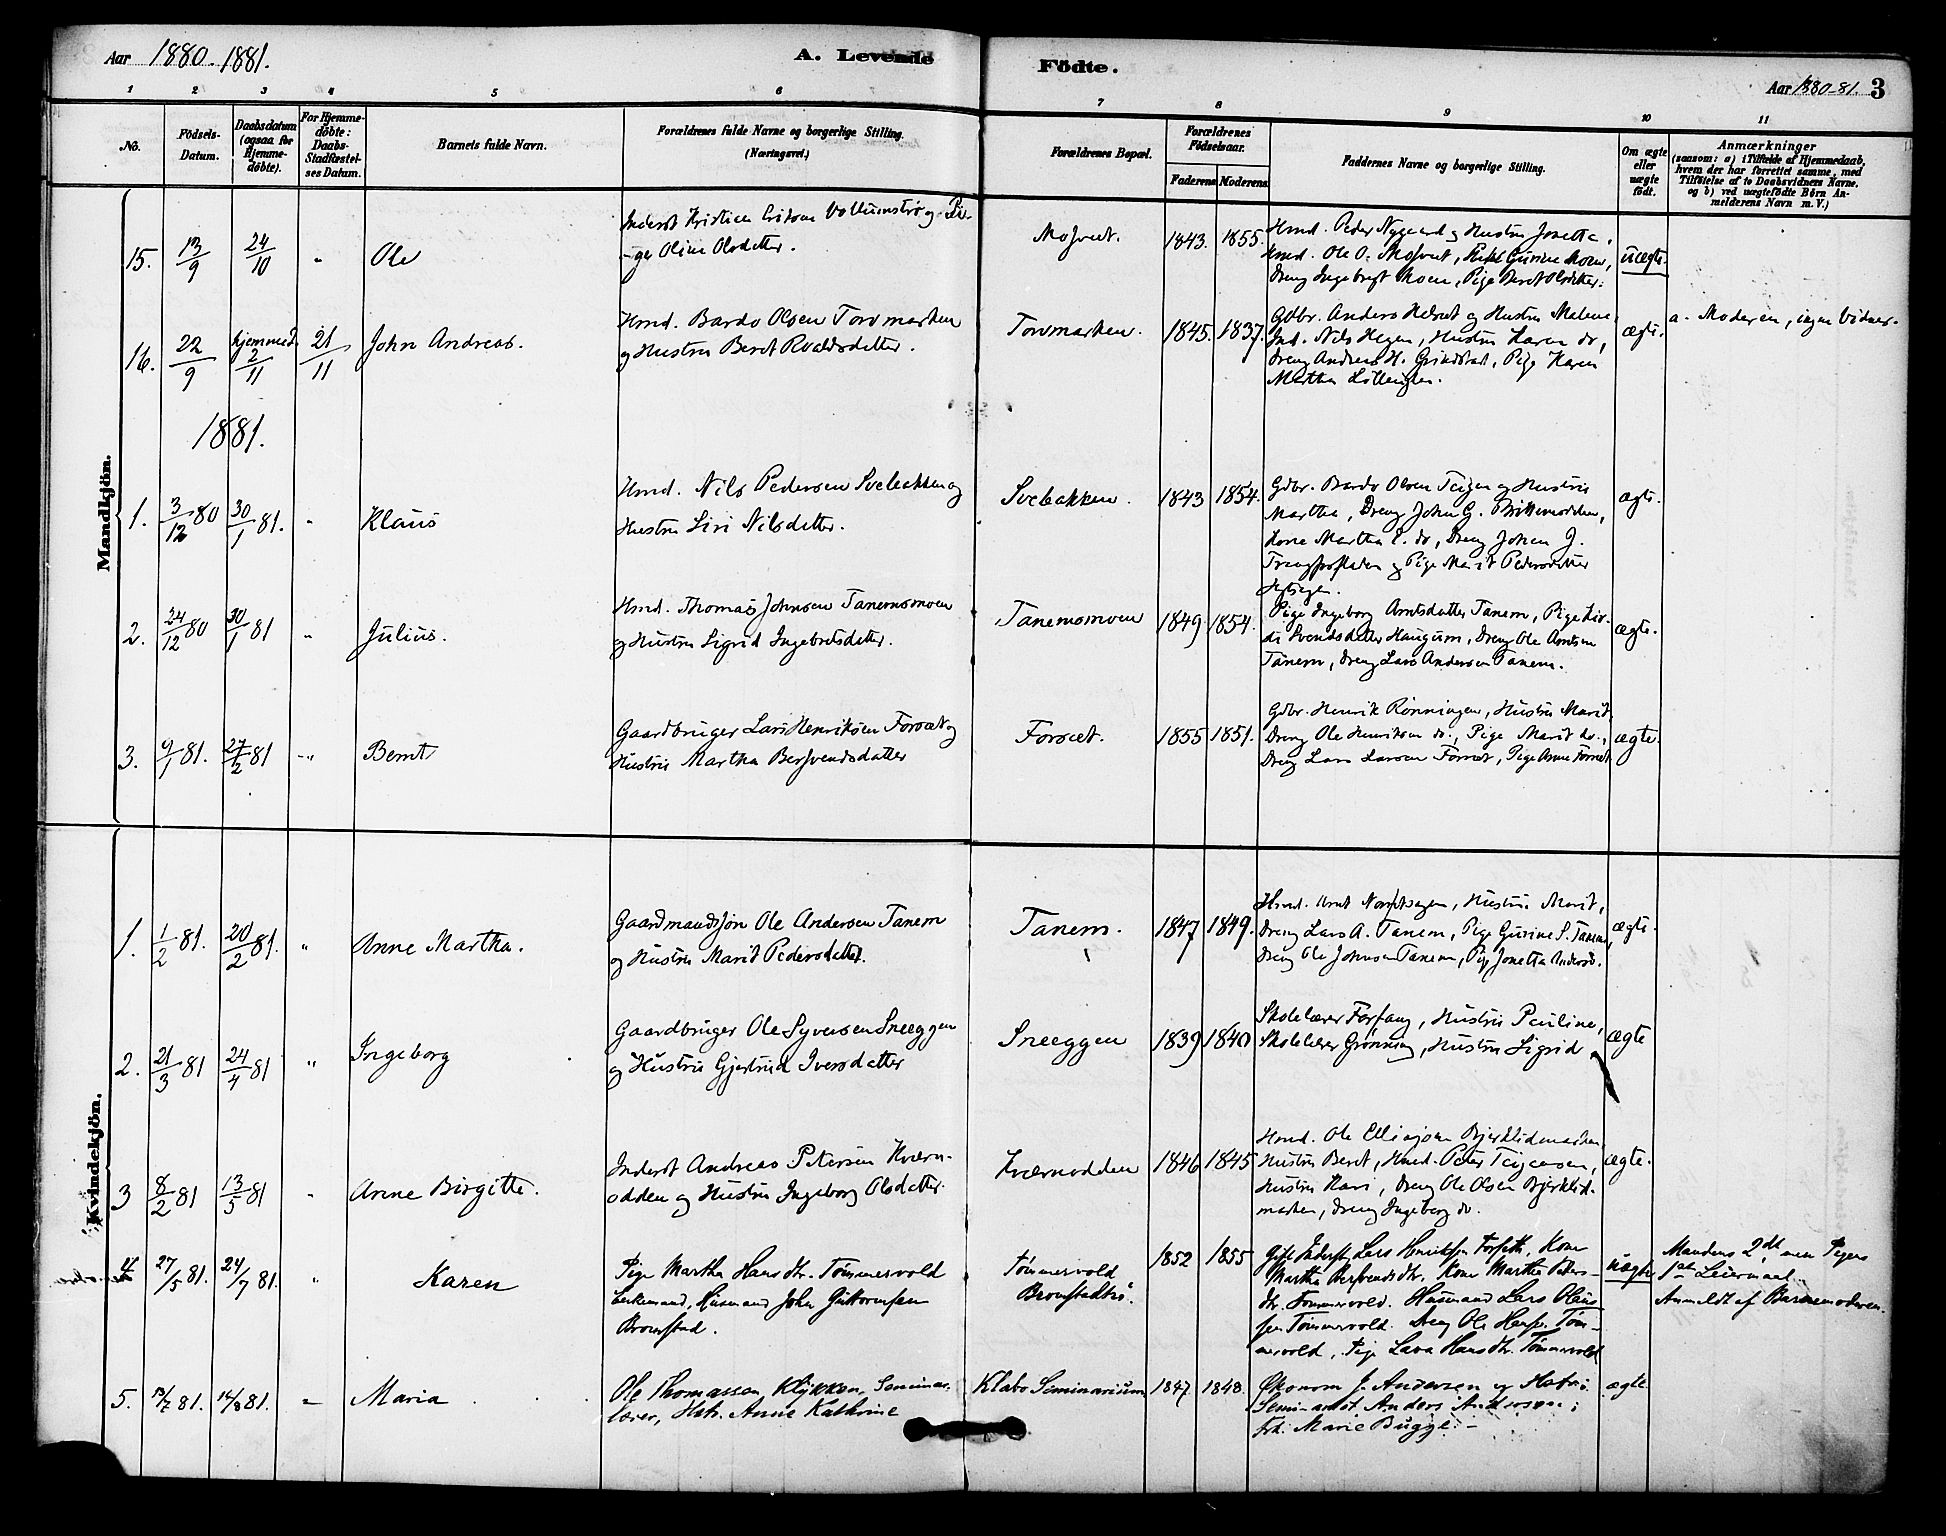 Aar 1880-1881.
A. Levende Födte.
Aar 1880-81. 3
1 2 3 4 5 6 7 8 9 10 11
No.
Födsels-
Datum.
Daabsdatum
(ogsaa for
Hjemme-
döbte).
For Hjemme-
döbte:
Daabs-
Stadfæstel-
ses Datum.
Barnets fulde Navn.
Forældrenes fulde Navne og borgerlige Stilling.
(Næringsvei.)
Forældrenes Bopæl.
Forældrenes
Födselsaar.
Faderens Moderens
Faddernes Navne og borgerlige Stilling.
Om ægte
eller
uægte
födt.
Anmærkninger
(saasom: a) i Tilfælde af Hjemmedaab,
hvem der har forrettet samme, med
Tilföielse af to Daabsvidners Navne,
og b) ved uægtefödte Börn An-
melderens Navn m. V.)
Mandkjön.
15. 13/9 24/10 " Ole
Inderst Kristian Eriksen og Pi-
ge Oline Olsdetter.
Mosveet. 1843. 1855.
Hmd. Peder Nygaard og Hustru Jonetta,
Hmd. Ole O. Mosveet, Gurine Moen,
Dreng Ingebrigt Moen, Pige Beret Olsdetter.
uægte.
16. 22/9 hjemmed. 2/11 21/11 John Andreas.
Hmd. Bardo Olsen Torvmarken
og Hustru Beret Roaldsdetter.
Torvmarken. 1845. 1837.
Gdbr. Anders og Hustru Malene,
Ind. Nils Hegen, Hustru Karen do,
Dreng Andreas H. Grindstad, Pige Karen
Martha
ægte.
a. Moderen, ingen Vidner.
1881.
1. 3/12 80 30/1 81. " Klaus
Hmd. Nils Pedersen Svebakken og
Hustru Siri Nilsdetter.
Svebakken. 1843 1854.
Gdbr. Bardo Olsen Teigen og Hustru
Martha, Dreng John G.
Kone Martha E. do, Dreng Johan J.
og Pige Marit Pedersdetter
ægte.
2. 24/12 80 30/1 81 " Julius.
Hmd. Thomas Johnsen Tanemsmoen
og Hustru Sigrid Ingebretsdetter.
Tanemsmoen 1849 1854.
Pige Ingeborg Arntsdatter Tanem, Pige
Svendsdetter Haugum, Dreng Ole Arntsen
Tanem, Dreng Lars Andersen Tanem.
ægte.
3. 9/1 81. 27/2 81 " Bernt
Gaardbruger Lars Henriksen Forsæt og
Hustru Martha Bersvendsdatter
Forsæt. 1855 1851.
Gdbr. Henrik Rönningen, Hustru Marit
Dreng Ole Henriksen do., Pige Marit do.,
Dreng Lars Larsen Forsæt, Pige Anne Forsæt
ægte.
Kvindekjön.
1. 1/2 81. 20/2 81. " Anne Martha.
Gaardmandssön Ole Andersen Tanem
og Hustru Marit Pedersdatter.
Tanem. 1847 1849.
Hmd. Arnt , Hustru Marit,
Dreng Lars A. Tanem, Pige Gurine S. Tanem,
Dreng Ole Johnsen Tanem, Pige Jonetta Andersd.
ægte.
2. 21/3 81 24/4 81 " Ingeborg
Gaardbruger Ole Syversen Sneeggen
og Hustru Gjertrud Iversdatter
Sneeggen 1839 1840
Skolelærer Forfang, Hustru Pauline,
Skolelærer Grönning, Hustru Sigrid
ægte
3 8/2 81 13/5 81 " Anne Birgitte.
Inderst Andreas Petersen Kværn-
odden og Hustru Ingeborg Olsdatter.
Kværnodden 1846 1845
Hmd. Ole Ellingsen Bjerklidmarken
Hustru Beret, Hmd. Peter ,
Hustru Kari, Dreng Ole Olsen Bjerklid-
marken, Dreng Ingeborg do.
ægte.
4 27/5 81. 24/7 81. " Karen
Pige Martha Hansdtr. Tömmervold
Enkemand, Husmand John Guttormsen
Bromstad.
Tömmervold
Bromstadtrö. 1852 1855
Gift Inderst Lars Henriksen Forseth, Kone
Martha Bersvendsdtr. Kone Martha Peters-
dtr. Tömmervold. Husmand Lars Olaus-
sen Tömmervold. Dreng Ole Hansen Töm-
mervold, Pige Lava Hansdtr. Tömmervold
uægte
Mandens 2det men Pigens
1ste Leiermaal.
Anmeldt af Barnemoderen.
5. 13/7 81. 14/8 81. " Maria
Ole Thomassen Klykken, Seminar-
lærer, Hstr. Anne Kathrine
Klæbo Seminarium 1847 1848.
Økonom J. Andersen og Hstr.;
Seminarist Anders Andersen;
Frk. Marie Bugge. -
ægte